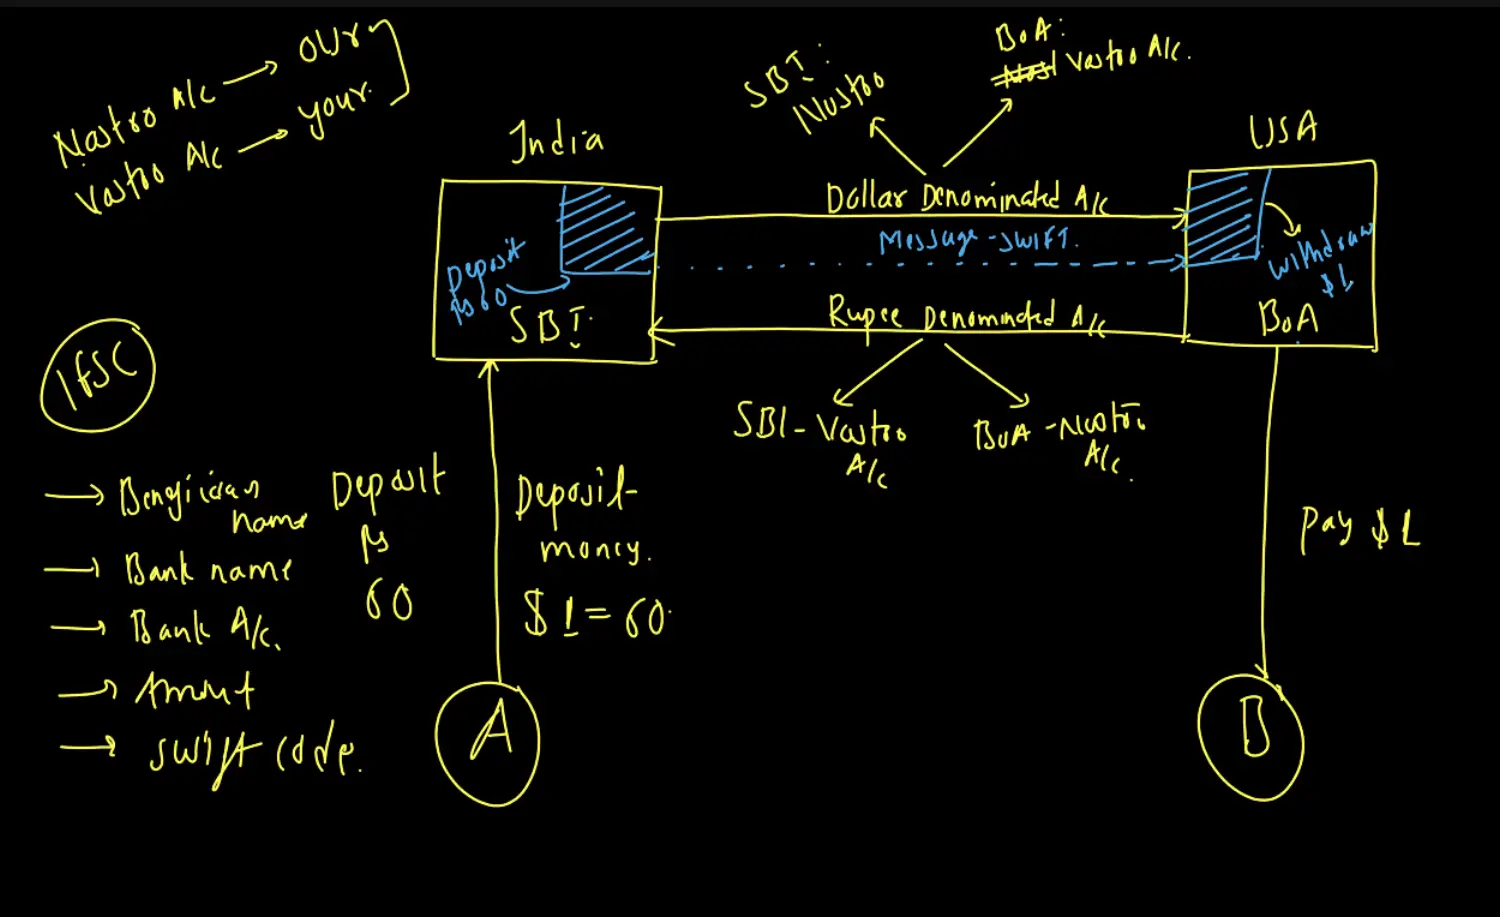 Nostro A/c → our
Vostro A/c → your
SBI :
Nostro
BoA :
Vostro A/c.
India
USA
Dollar Denominated A/c
Message - SWIFT.
Deposit
Rs 60
SBI
withdraw
$1
BoA
Rupee Denominated A/c
IFSC
SBI - Vostro
A/c
BoA - Nostro
A/c.
→ Beneficiary
name
→ Bank name
→ Bank A/c.
→ Amount
→ swift code.
Deposit
Rs
60
Deposit
money.
$1 = 60
Pay $1
A
B